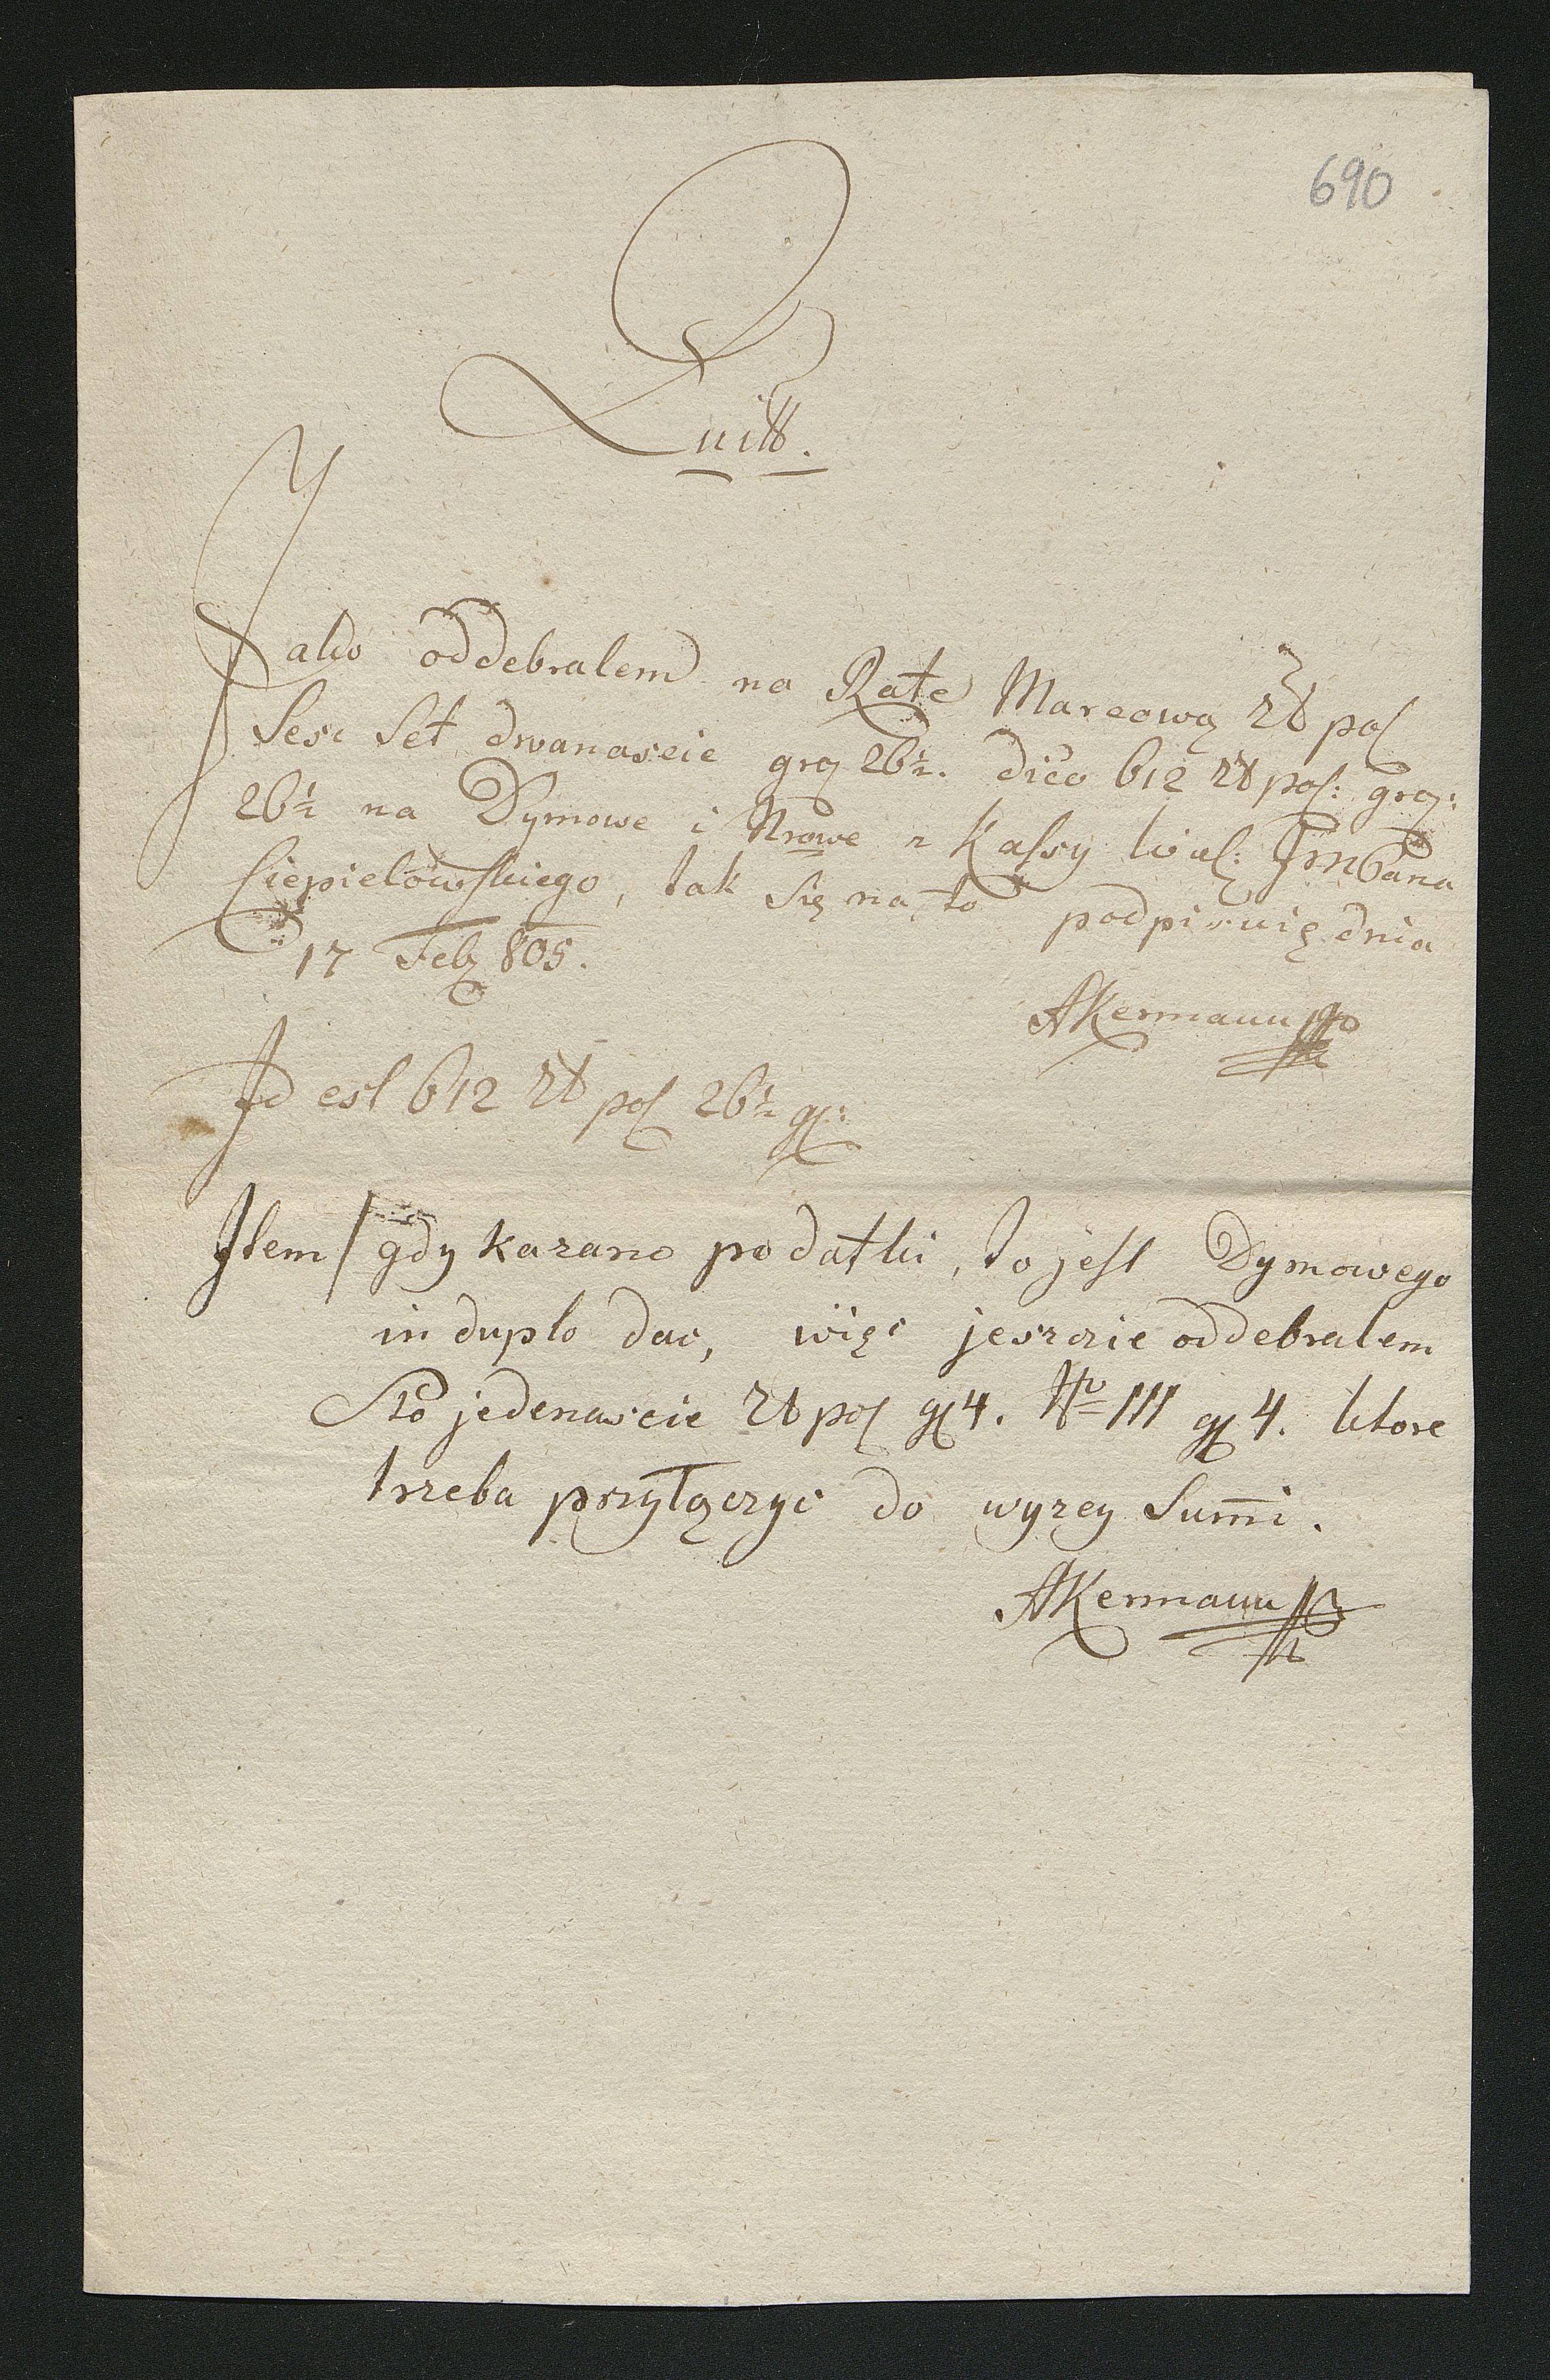 690
Quitt.
Jako oddebralem na Rate Marcową Zł pol
Sesc Set dwanascie gro 26½. dico 612 Zł pol: gro:
26½ na Dymowe i Nrowe z Kassy  JmPana
Ciepielowskiego, tak Się na to podpisuię dnia
17 Feb 805.
AKermann
Id est 612 Zł pol 26½ g:
Item / gdy kazano podatki, to jest Dymowego
in duplo dac, więc jeszczie oddebralem
Sto jedenascie Zł pol g 4. No 111 g 4. ktore
trzeba przyłączyc do wyzey Sum̄i.
AKermann